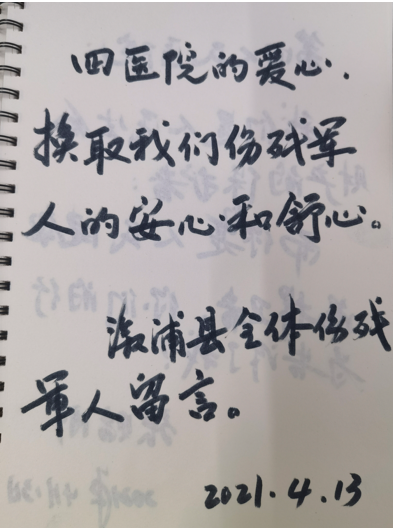 四医院的爱心,
换取我们伤残军
人的安心和舒心。
溆浦县全体伤残
军人留言。
2021.4.13